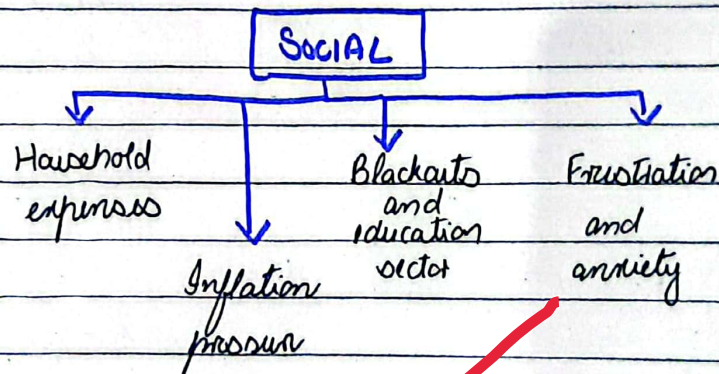 SOCIAL
Household
expenses
Inflation
pressure
Blackouts
and
education
sector
Frustration
and
anxiety